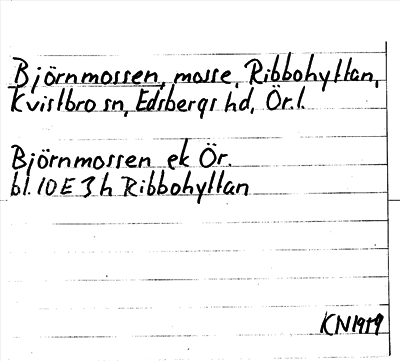 Björnmossen, mosse, Ribbohyttan,
Kvistbro sn, Edsbergs hd, Ör.l.
Björnmossen ek Ör.
bl. 10E 3h Ribbohyttan